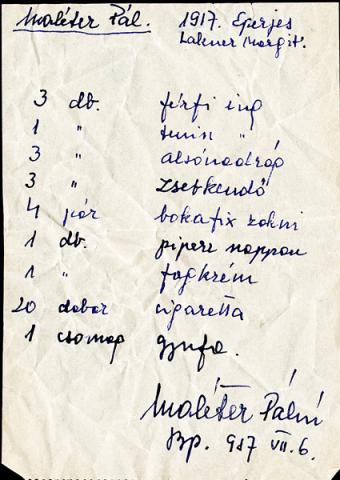 Maléter Pál. 1917. Eperjes
Lakner Margit.
3 db. férfi ing
1 " tenisz "
3 " alsónadrág
3 " zsebkendő
4 pár bokafix zokni
1 db. pipere szappan
1 " fogkrém
20 doboz cigaretta
1 csomag gyufa.
Maléter Pálné
Bp. 957 VII. 6.